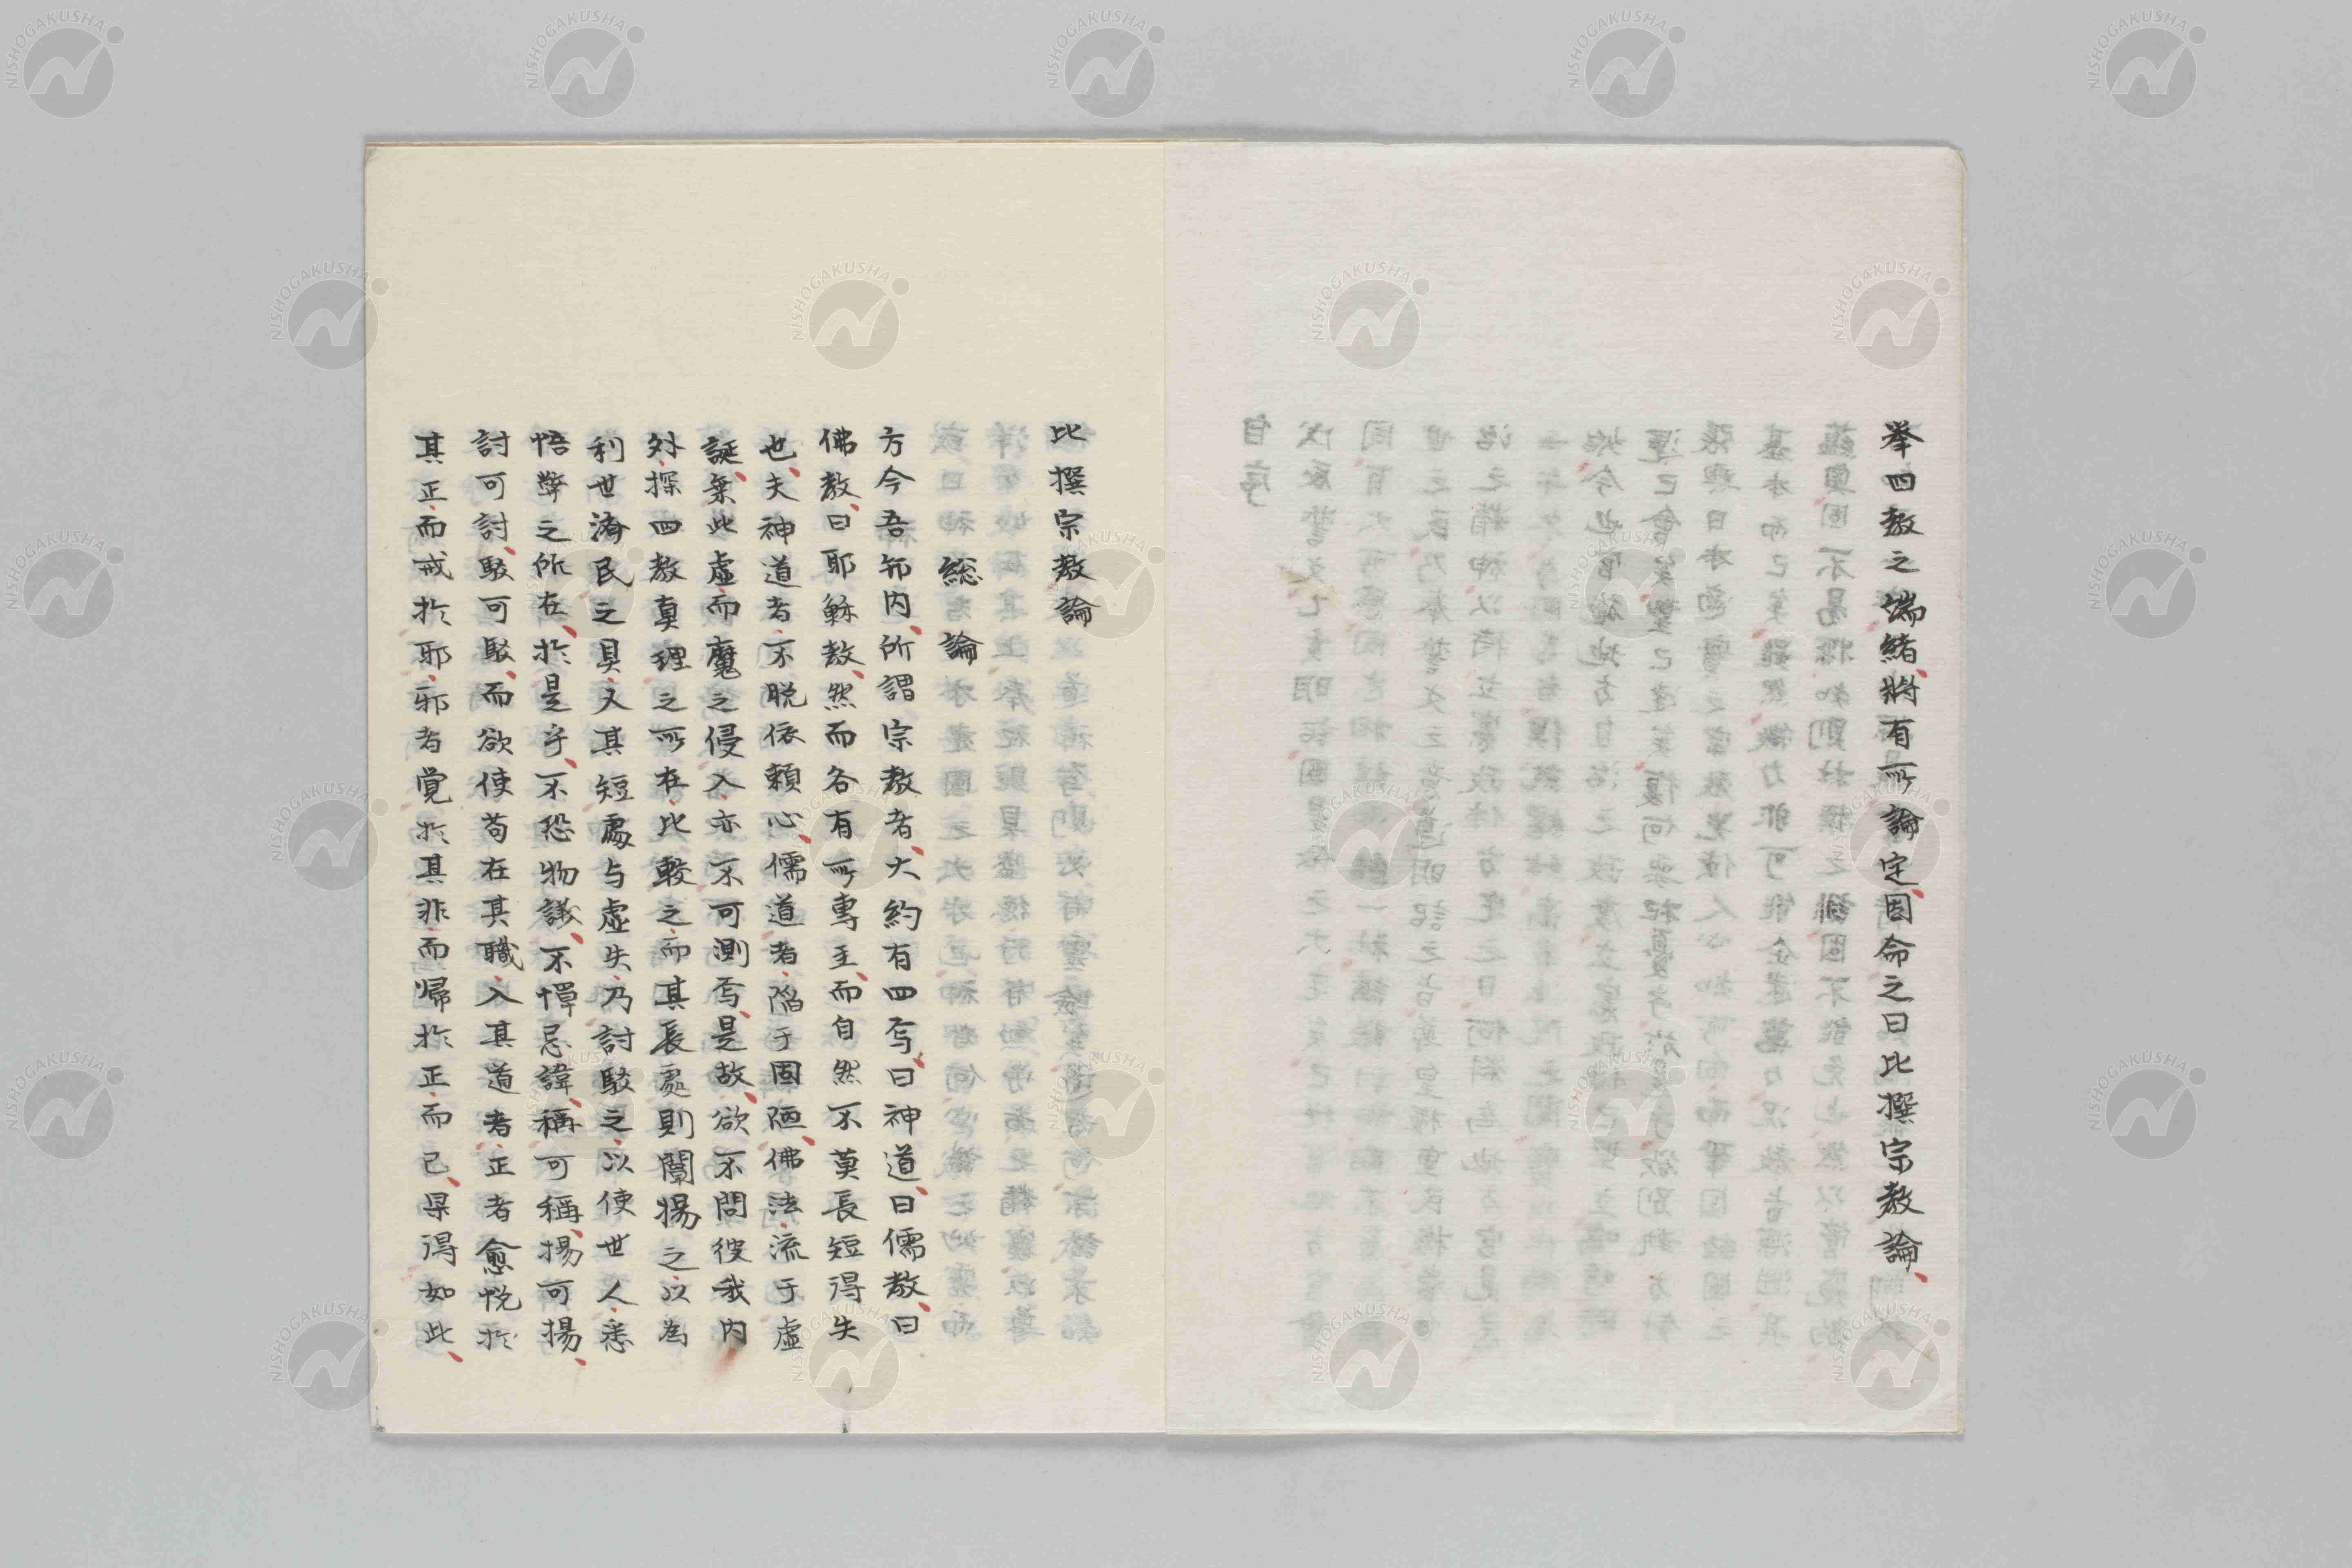 挙四教之端緒、将有所論定、因命之曰比撰宗教論、
比撰宗教論
総論
方今吾邦内、所謂宗教者、大約有四焉、曰神道、曰儒教、曰
佛教、曰耶穌教、然而各有所專主、而自然不莫長短得失
也、夫神道者、不脱依頼心、儒道者、陥于固陋、佛法、流于虚
誕、棄此虚、而魔之侵入、亦不可測焉、是故、欲不問彼我内
外、探四教真理之所在、比較之、而其長處則闡揚之、以為
利世済民之具、又其短處与虚失、乃討駁之、以使世人悉
悟弊之所在、於是乎、不恐物議、不憚忌諱、稱可稱、揚可揚、
討可討、駁可駁、而欲使苟在其職、入其道者、正者愈悦於
其正、而戒於耶、邪者覚於其非、而帰於正、而已、果得如此、
NISHOGAKUSHA